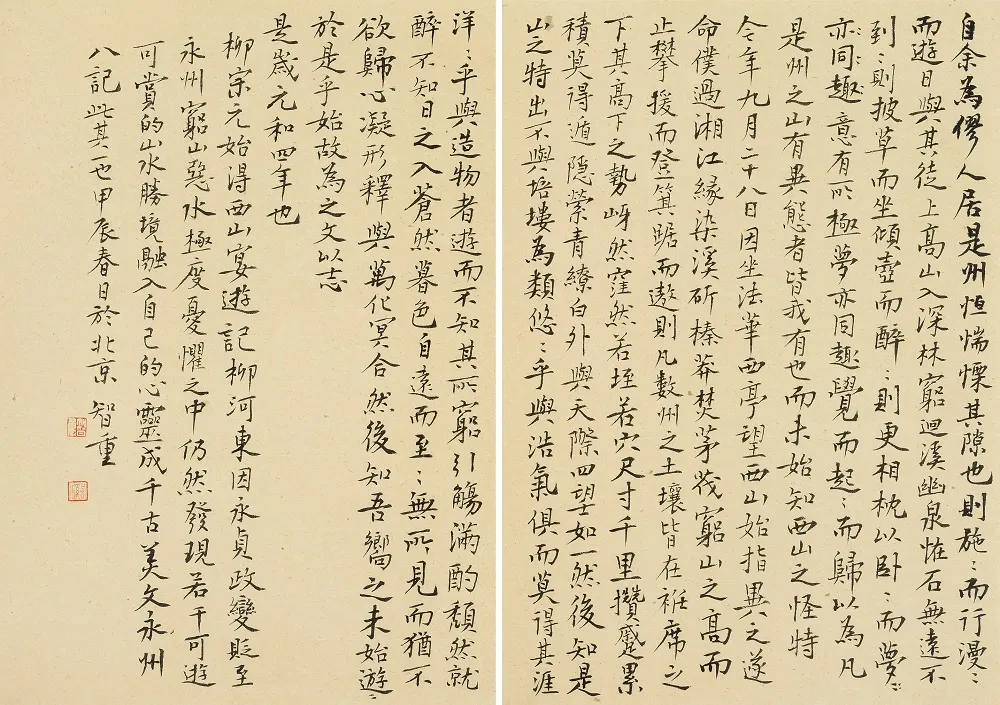 自余為僇人居是州恒惴慄其隙也則施〻而行漫〻
而遊日與其徒上高山入深林窮迴溪幽泉怪石無遠不
到〻則披草而坐傾壺而醉〻則更相枕以卧〻而夢〻
亦同趣意有所極夢亦同趣覺而起〻而歸以為凡
是州之山有異態者皆我有也而未始知西山之怪特
今年九月二十八日因坐法華西亭望西山始指異之遂
命僕過湘江緣染溪斫榛莽焚茅茷窮山之高而
止攀援而登箕踞而遨則凡數州之土壤皆在衽席之
下其高下之勢岈然窪然若垤若穴尺寸千里攢蹙累
積莫得遁隱縈青繚白外與天際四望如一然後知是
山之特出不與培塿為類悠〻乎與浩氣俱而莫得其涯
洋〻乎與造物者遊而不知其所窮引觴滿酌頹然就
醉不知日之入蒼然暮色自遠而至〻無所見而猶不
欲歸心凝形釋與萬化冥合然後知吾嚮之未始遊〻
於是乎始故為之文以志
是歲元和四年也
柳宗元始得西山宴遊記柳河東因永貞政變貶至
永州窮山惡水極度憂懼之中仍然發現若干可遊
可賞的山水勝境融入自己的心靈成千古美文永州
八記此其一也甲辰春日於北京智重